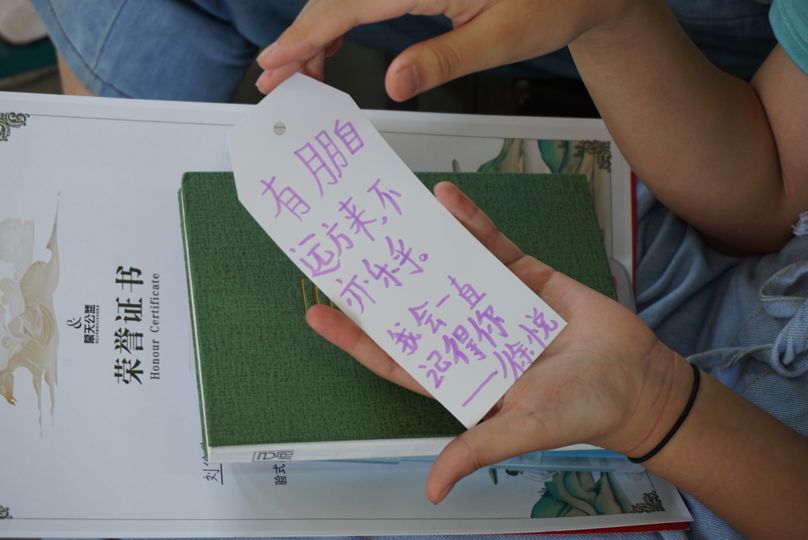 有朋自
远方来,不
亦乐乎。
我会一直
记得你
—徐悦
&
聚天公益
荣誉证书
Honour Certificate